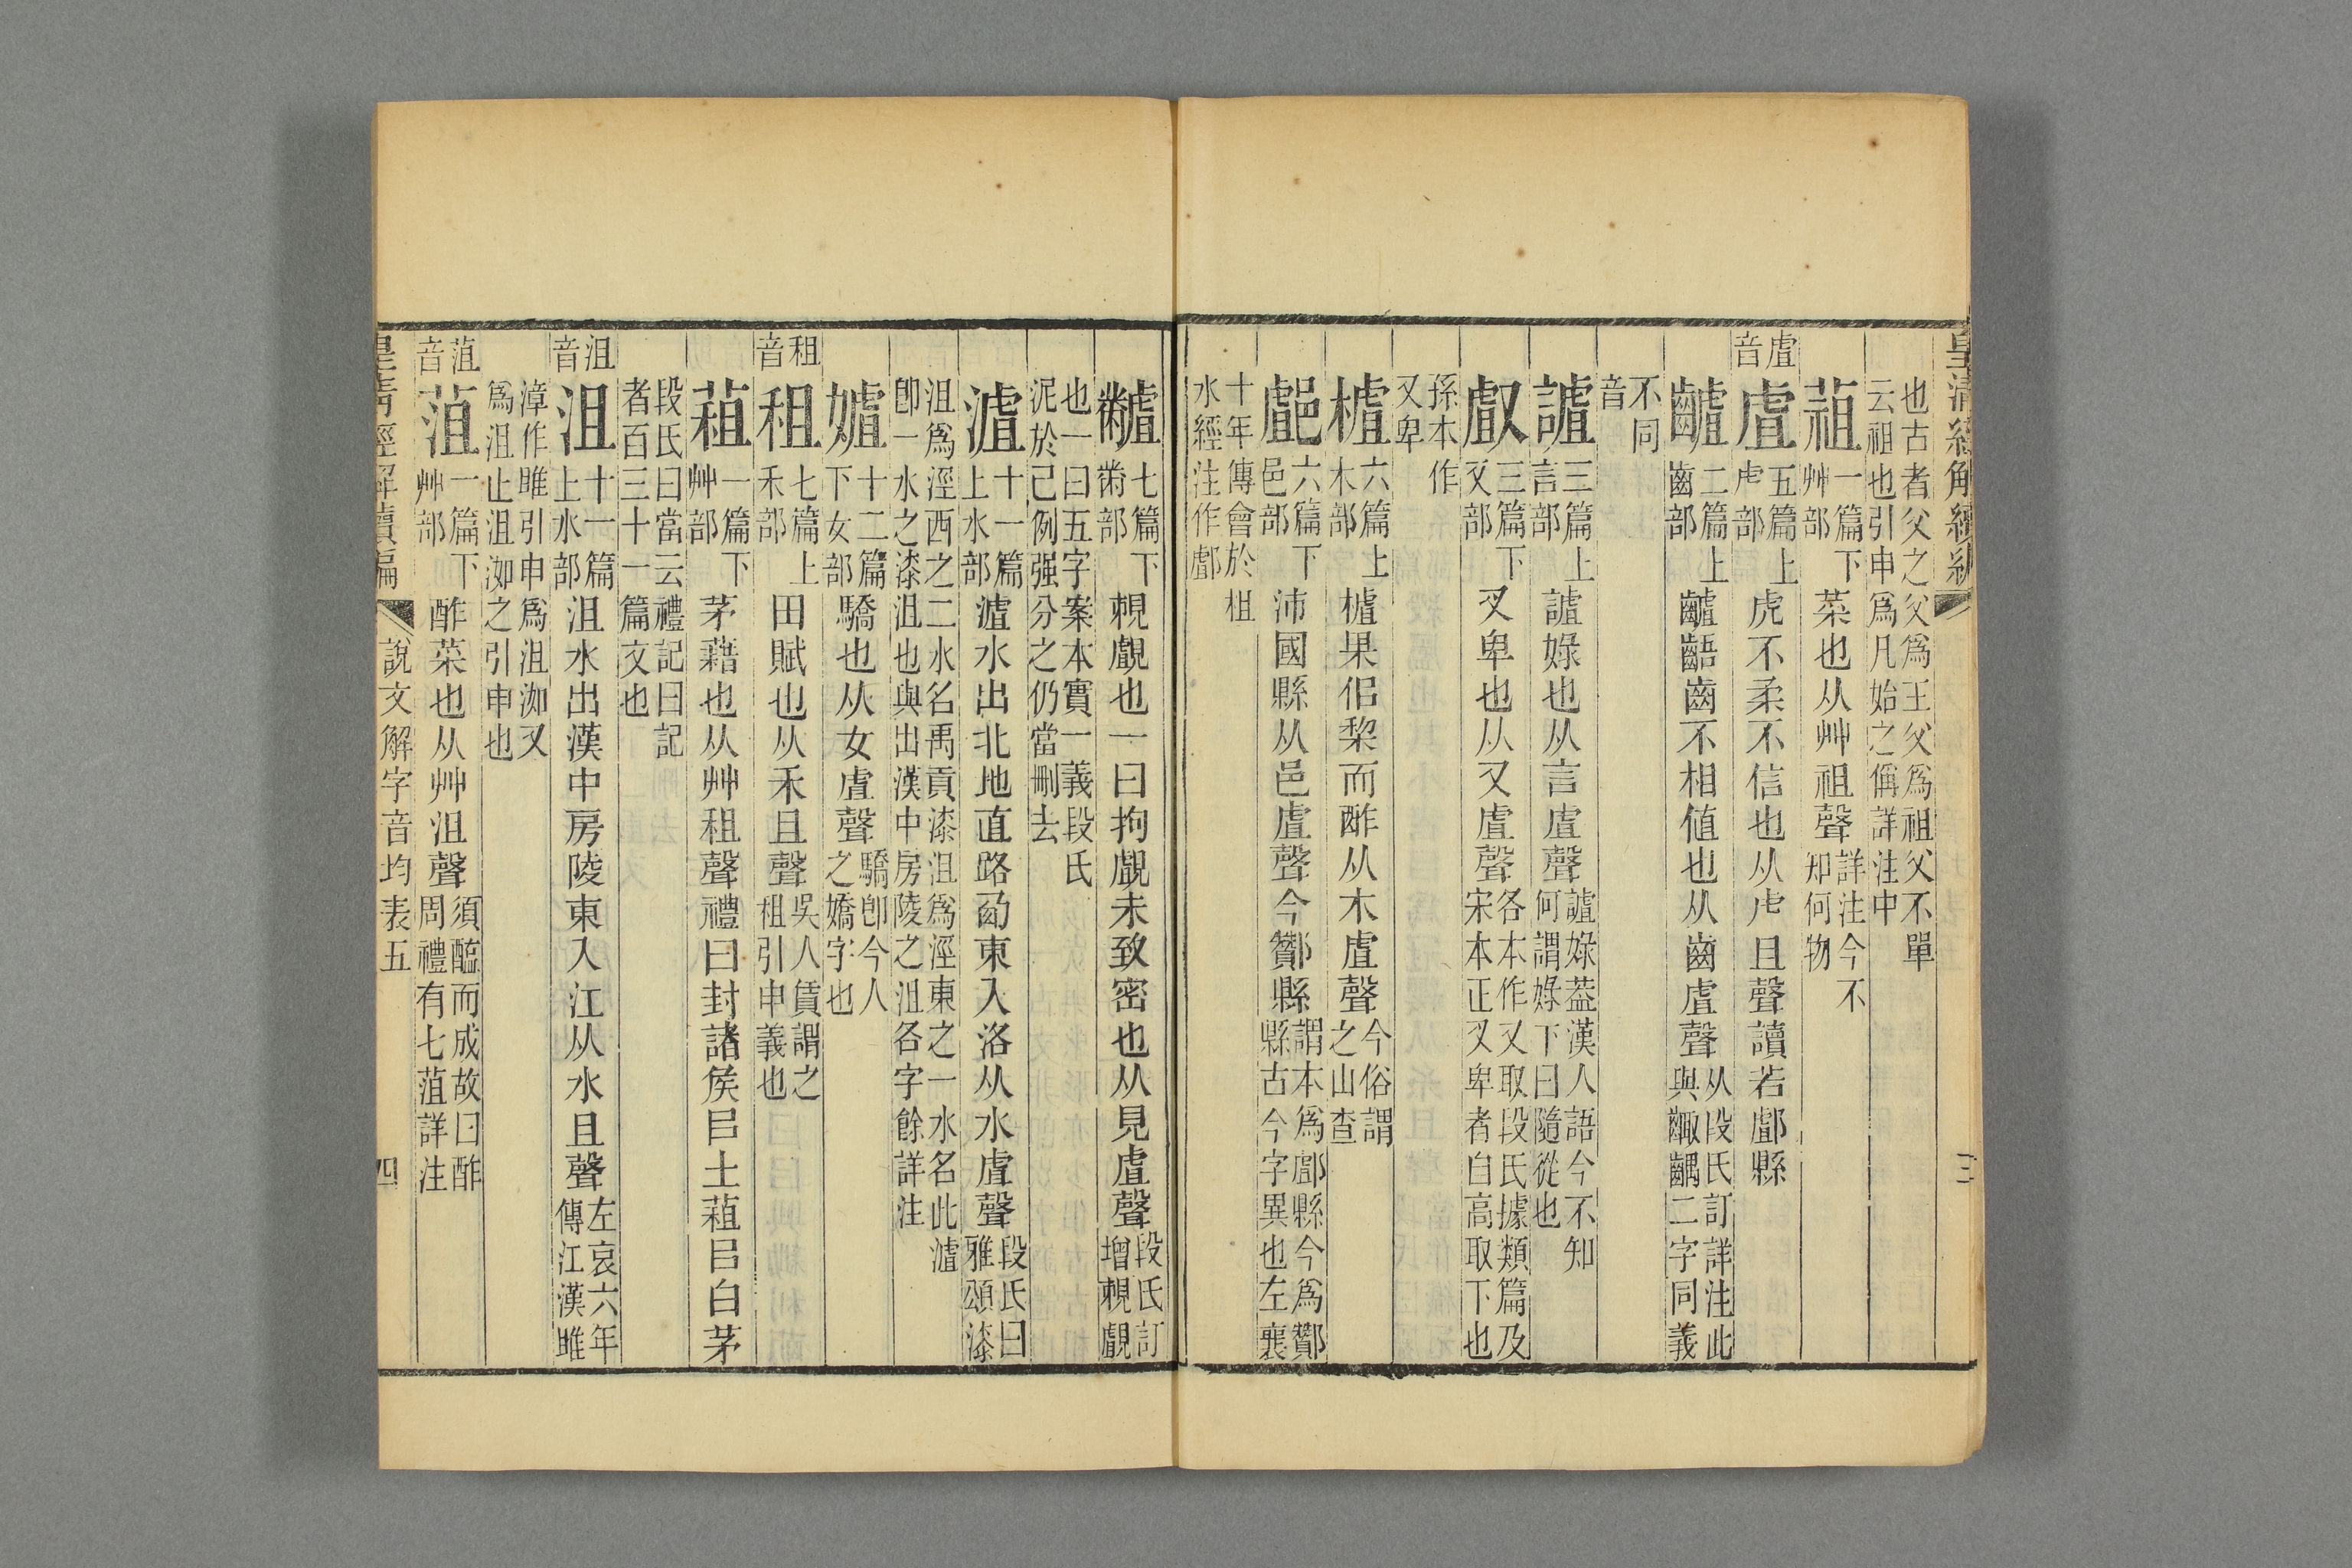 皇清經解續編
三
也古者父之父爲王父父爲祖父不單
云祖也引申爲凡始之偁詳注中
蒩一篇下艸部菜也从艸祖聲詳注今不知何物
虘音虘五篇上虍部虎不柔不信也从虍且聲讀若𨞓縣
䶥二篇上齒部䶥齬齒不相値也从齒虘聲从段氏訂詳注此與齱齵二字同義
不同音
謯三篇上言部謯娽也从言虘聲謯娽葢漢人語今不知何謂娽下曰隨從也
㪥三篇下又部叉卑也从又虘聲各本作又取段氏據類篇及宋本正叉卑者自高取下也
孫本作又卑
樝六篇上木部樝果佀棃而酢从木虘聲今俗謂之山查
𨞓六篇下邑部沛國縣从邑虘聲今酇縣謂本爲𨞓縣今爲酇縣古今字異也左襄
十年傳會於柤水經注作𨞓
䵵七篇下黹部
覰覰也一曰拘覰未致密也从見虘聲段氏訂增䙷覰
也一曰五字案本實一義段氏泥於己例强分之仍當刪去
瀘十一篇上水部瀘水出北地直路西東入洛从水虘聲段氏曰雅頌漆
沮爲涇西之二水名禹貢漆沮爲涇東之一水名此瀘
卽一水之漆沮也與出漢中房陵之沮各字餘詳注
㜘十二篇下女部驕也从女虘聲驕卽今人之嬌字也
租音租七篇上禾部田賦也从禾且聲吳人賃謂之租引申義也
蒩一篇下艸部茅藉也从艸租聲禮曰封諸矦㠯土蒩㠯白茅
段氏曰當云禮記曰記者百三十一篇文也
沮音沮十一篇上水部沮水出漢中房陵東入江从水且聲左哀六年傳江漢雎
漳作雎引申爲沮洳又爲沮止沮洳之引申也
菹音菹一篇下艸部酢菜也从艸沮聲須醯而成故曰酢周禮有七菹詳注
皇清經解續編
說文解字音均表五
四